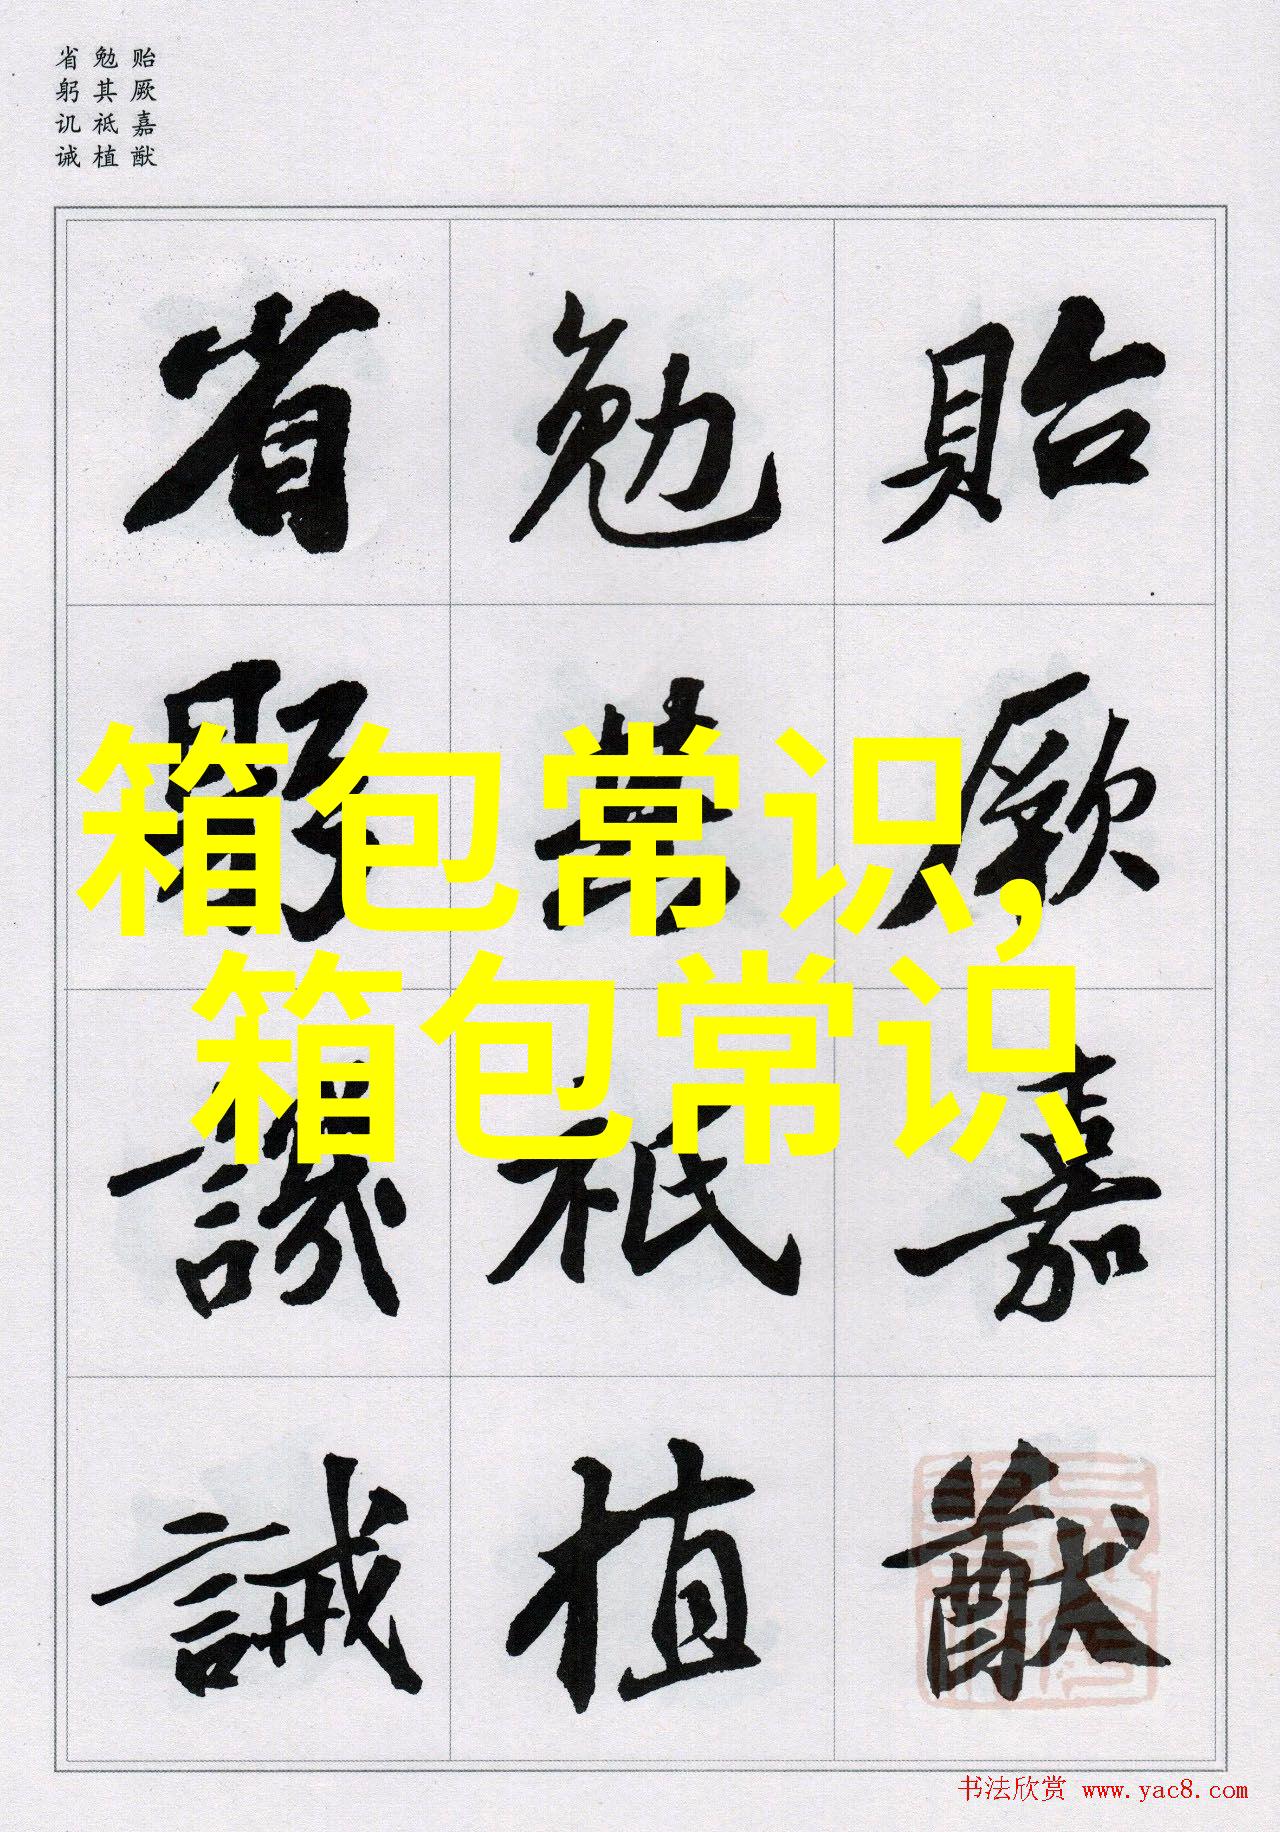 贻厥嘉猷
勉其祗植
省躬讥诫
貽厥嘉猷
勉其祗植
省躬譏誡
箱包常识,
箱包常识
书法欣赏 www.yac8.com